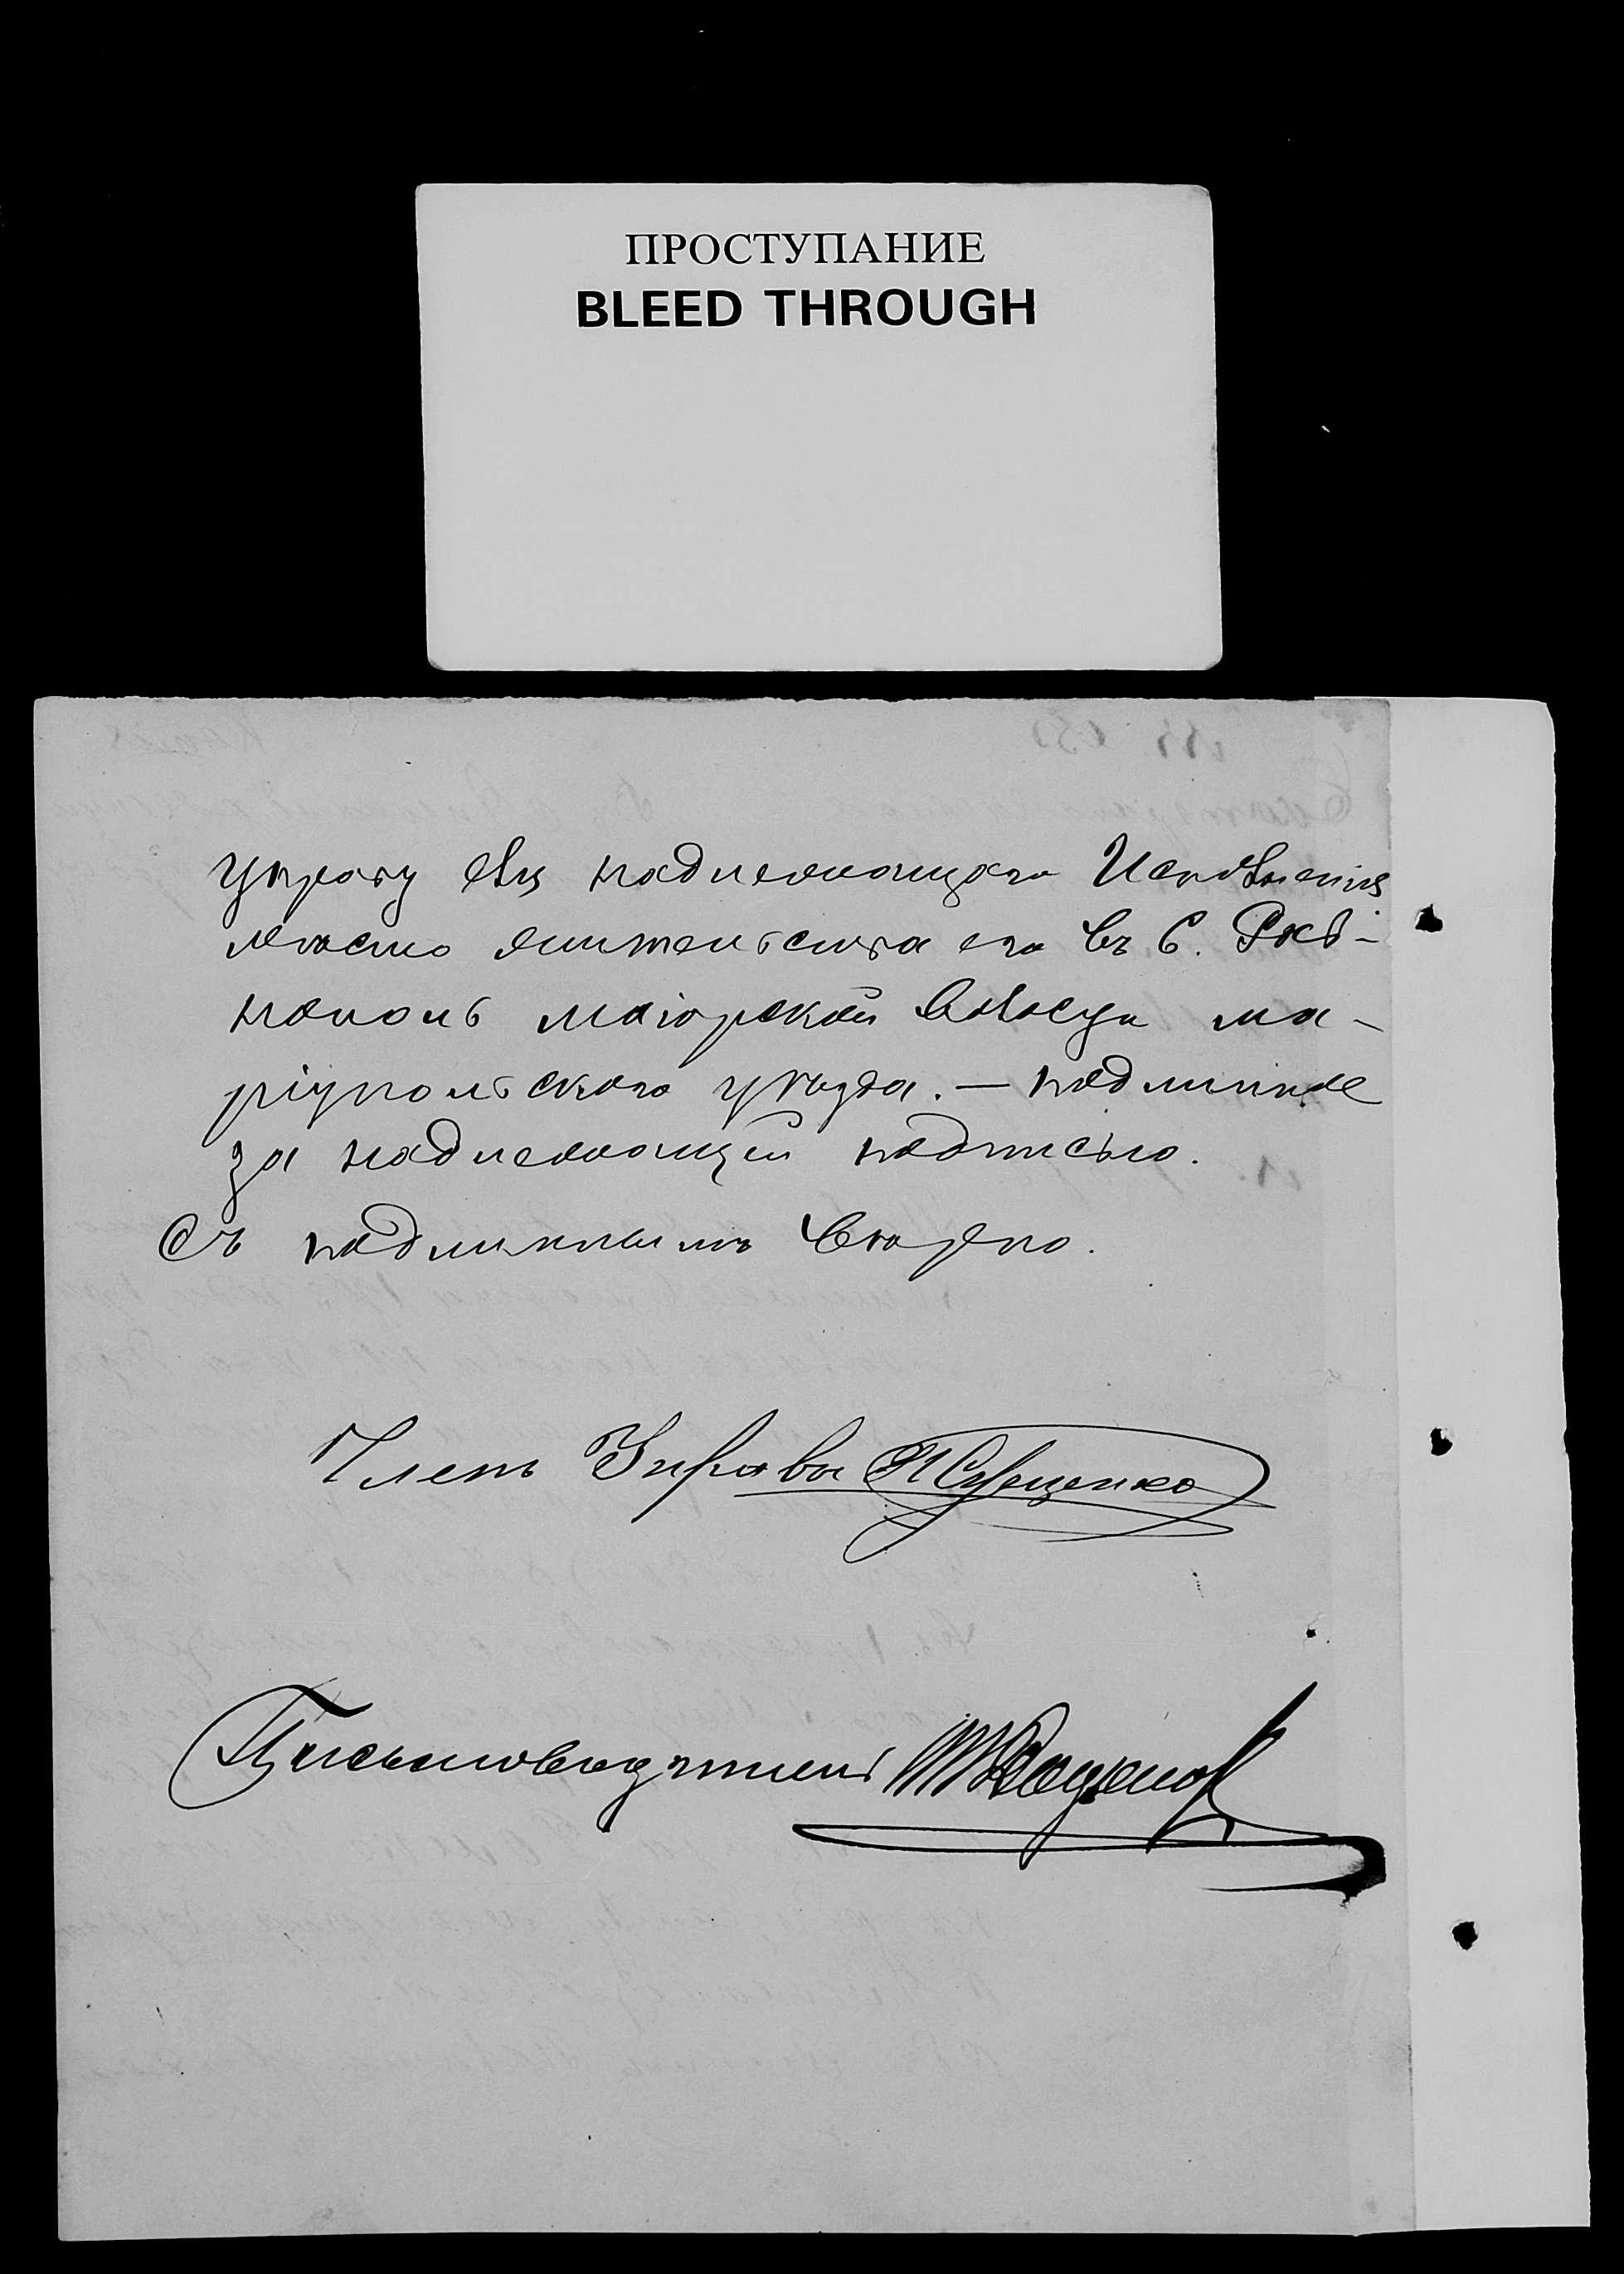 ПРОСТУПАНИЕ
BLEED THROUGH
управу для надлежащаго Исполненія
место жительства его въ С.
маіорской волости ма-
ріупольского уезда. — подлинное
за надлежащей подписью.
Съ подлиннымъ верно.
Членъ Управы
Письмоводитель